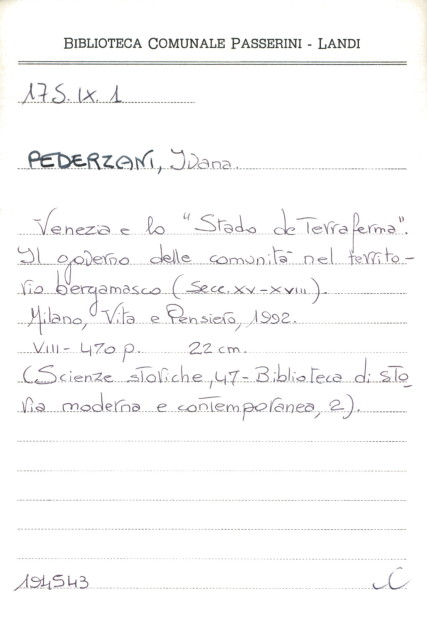 BIBLIOTECA COMUNALE PASSERINI - LANDI
175.IX.1
PEDERZANI, Ivana.
Venezia e lo "Stado de Terraferma".
Il governo delle comunità nel territo-
rio bergamasco (Secc. XV-XVIII).
Milano, Vita e Pensiero, 1992.
VIII- 470 p. 22 cm.
(Scienze storiche, 47- Biblioteca di sto
ria moderna e contemporanea, 2).
194543